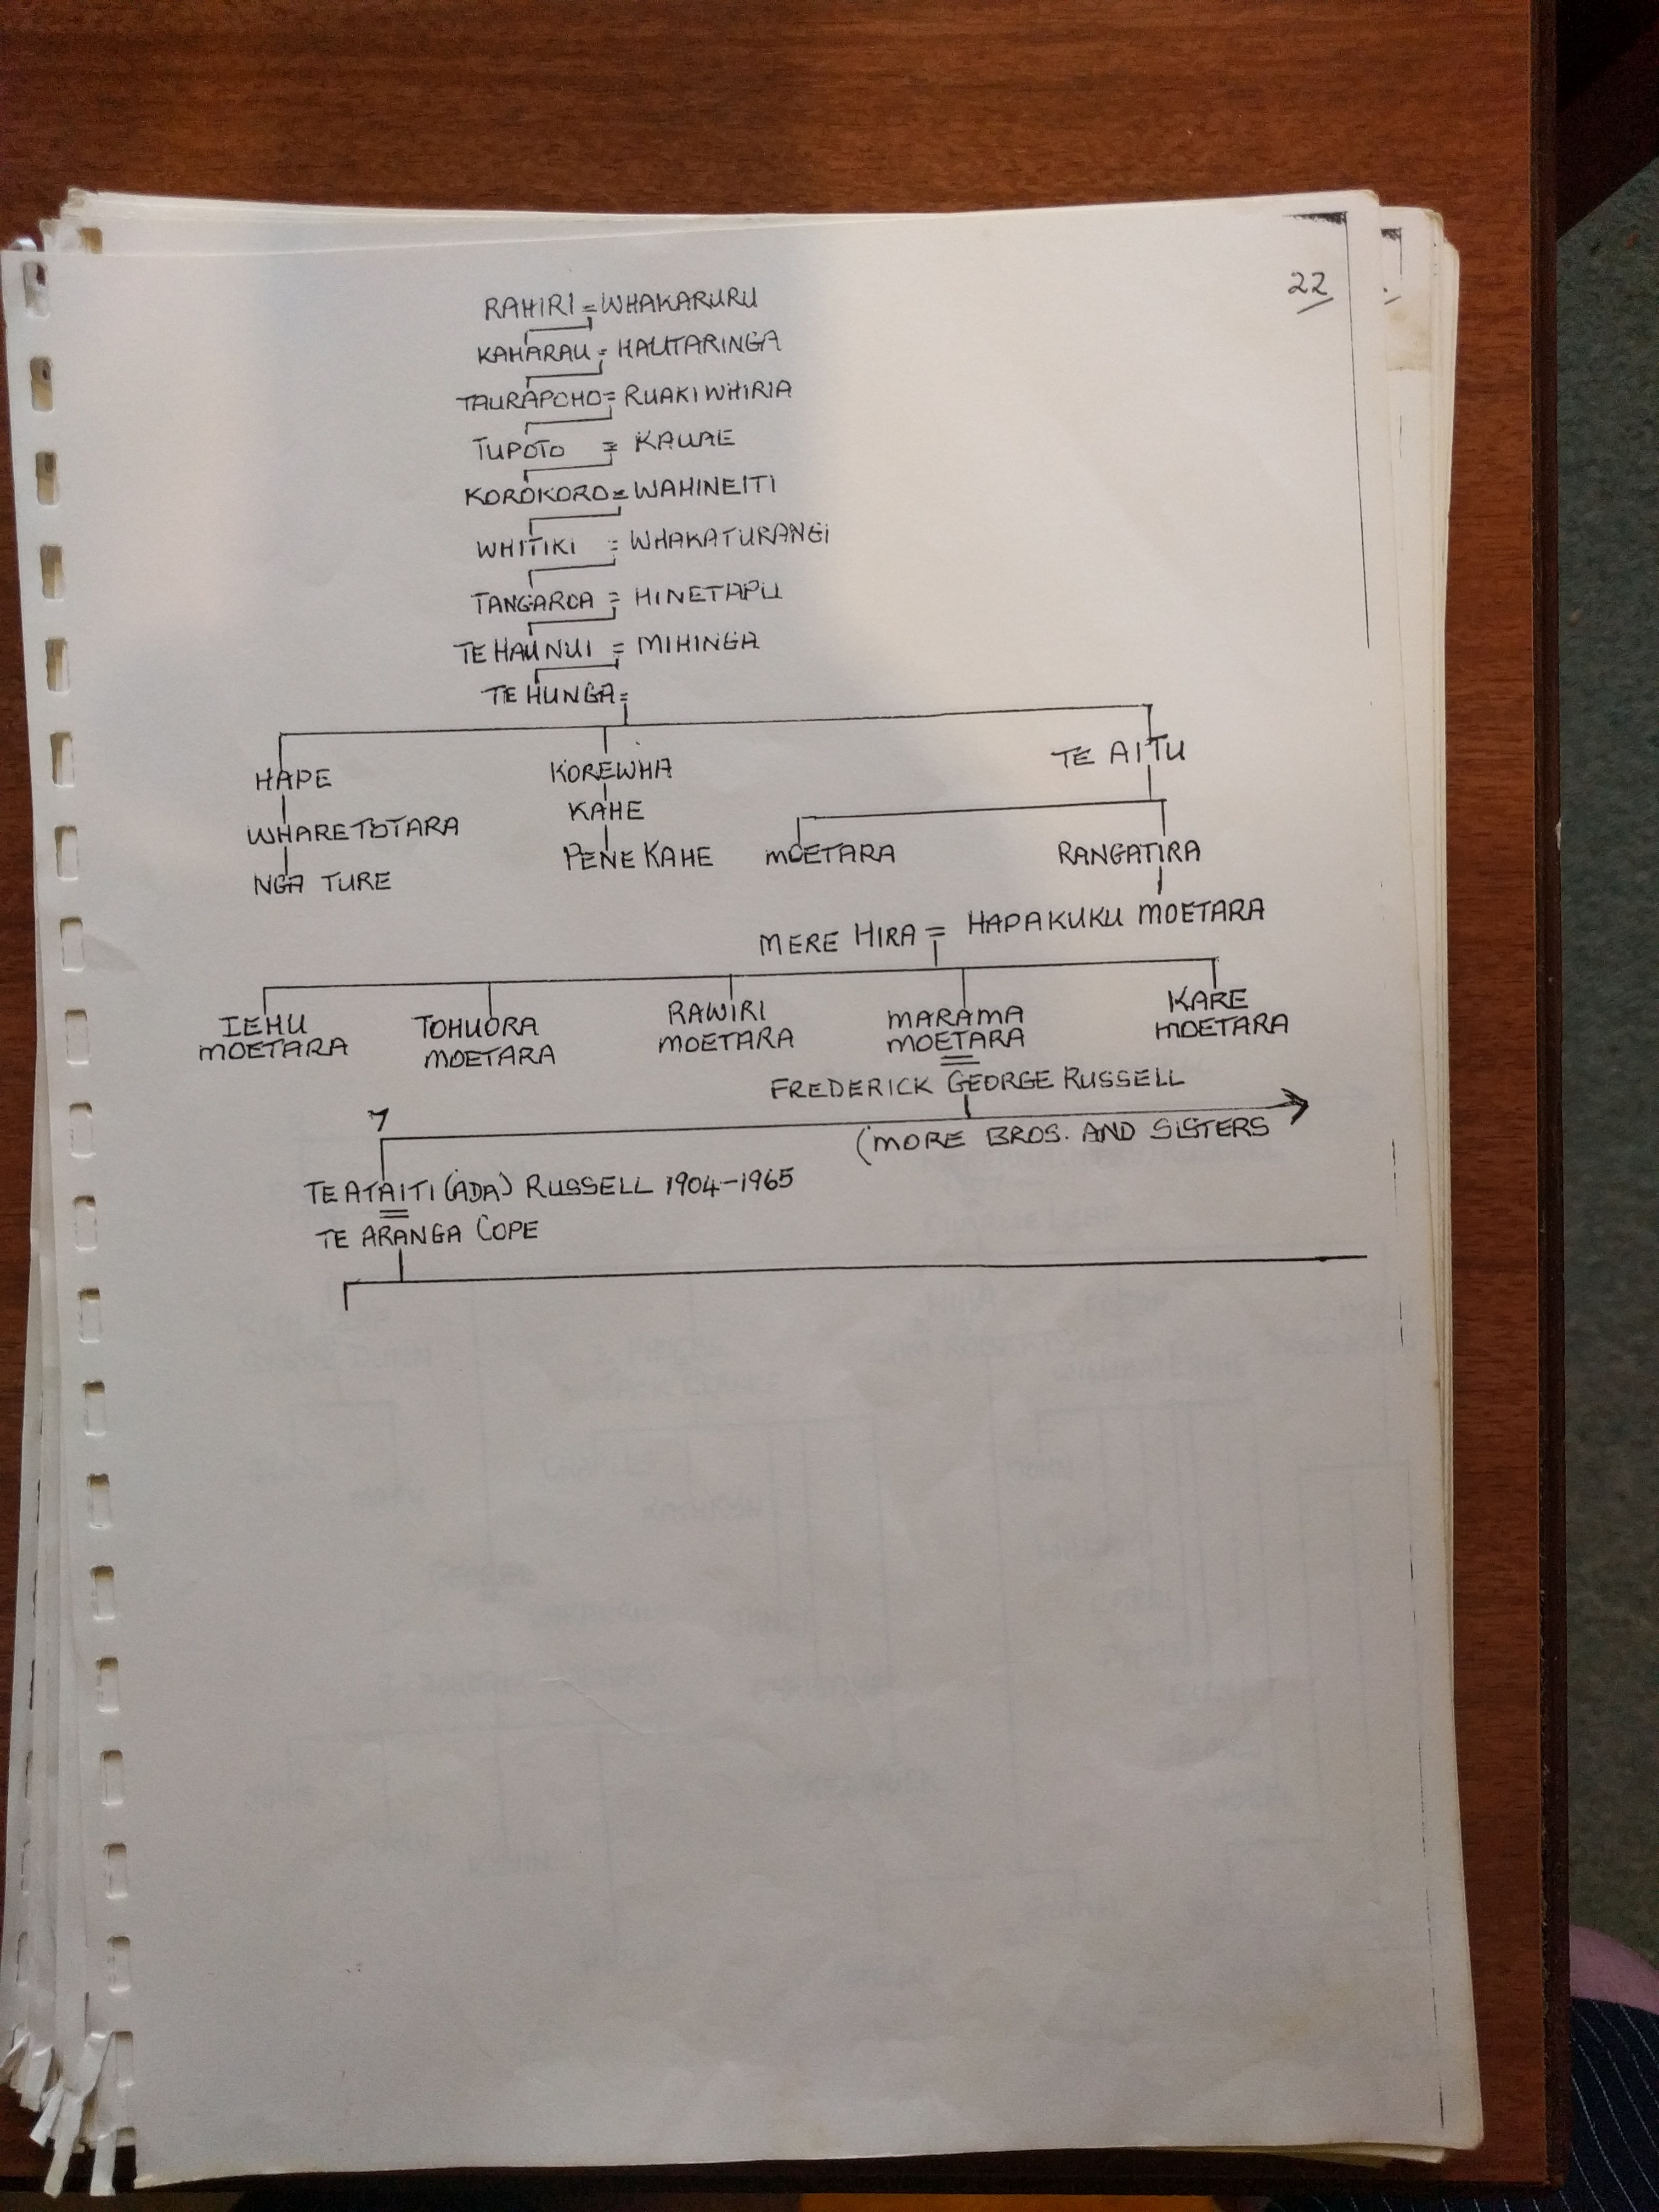 22
RAHIRI = WHAKARURU
KAHARAU = HAUTARINGA
TAURAPOHO = RUAKIWHIRIA
TUPOTO = KAWAE
KOROKORO = WAHINEITI
WHITIKI = WHAKATURANGI
TANGAROA = HINETAPU
TE HAUNUI = MIHINGA
TE HUNGA =
HAPE KOREWHA TE AITU
KAHE
WHARETOTARA PENE KAHE MOETARA RANGATIRA
NGA TURE
MERE HIRA = HAPAKUKU MOETARA
IEHU TOHUORA RAWIRI MARAMA KARE
MOETARA MOETARA MOETARA MOETARA MOETARA
=
FREDERICK GEORGE RUSSELL
(MORE BROS. AND SISTERS
TE ATAITI (ADA) RUSSELL 1904-1965
=
TE ARANGA COPE